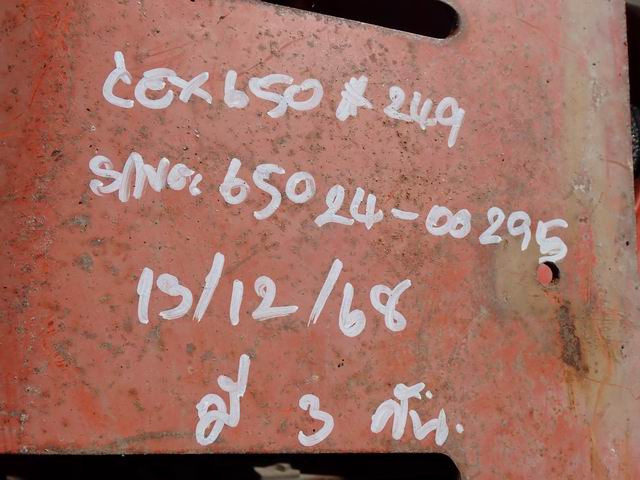 LEX650 # 249
S/No: 65024-00295
13/12/68
มี 3 คัน.